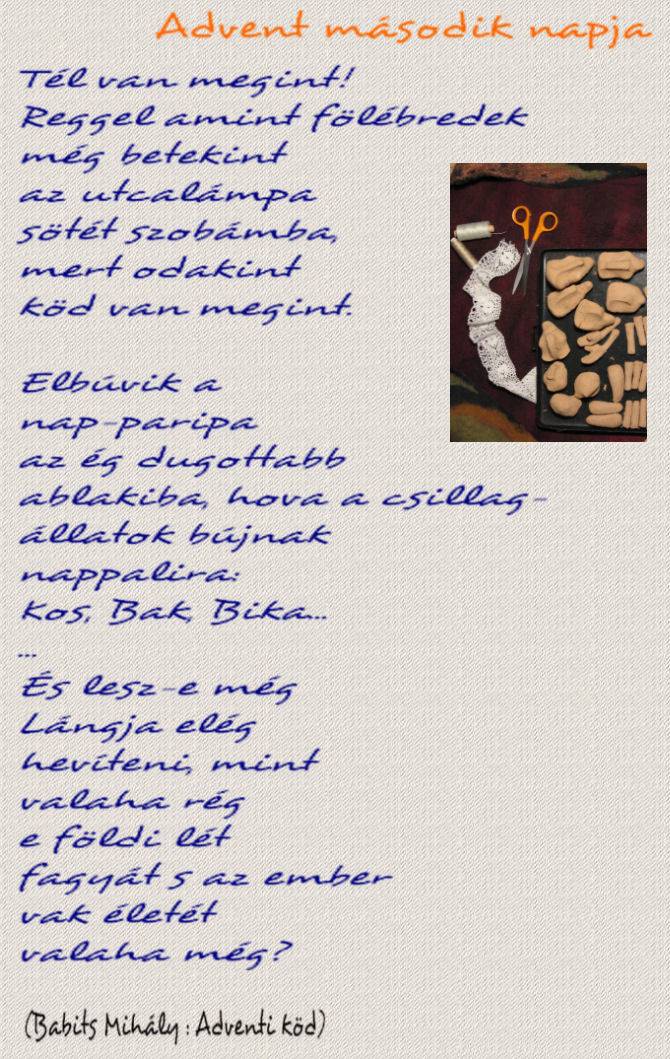 Advent második napja
Tél van megint!
Reggel amint fölébredek
még betekint
az utcalámpa
sötét szobámba,
mert odakint
köd van megint.
Elbúvik a
nap-paripa
az ég dugottabb
ablakiba, hova a csillag-
állatok bújnak
nappalira:
Kos, Bak, Bika...
...
És lesz-e még
Lángja elég
hevíteni, mint
valaha rég
e földi lét
fagyát s az ember
vak életét
valaha még?
(Babits Mihály : Adventi köd)